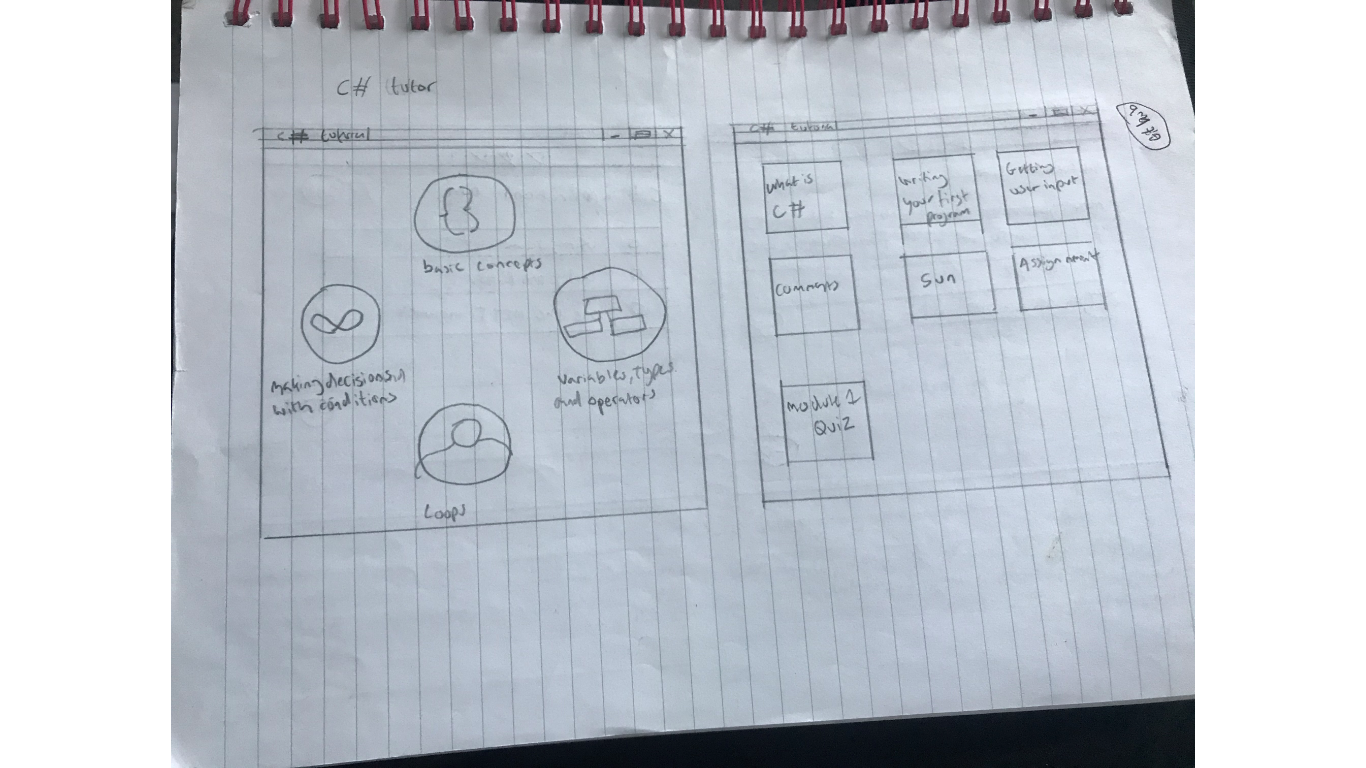 C# tutor
C# tutorial
basic concepts
making decisions
with conditions
variables, types
and operators
Loops
C# tutorial
What is
C#
writing
your first
program
Getting
user input
Comments
Sun
Assignment
module 1
Quiz